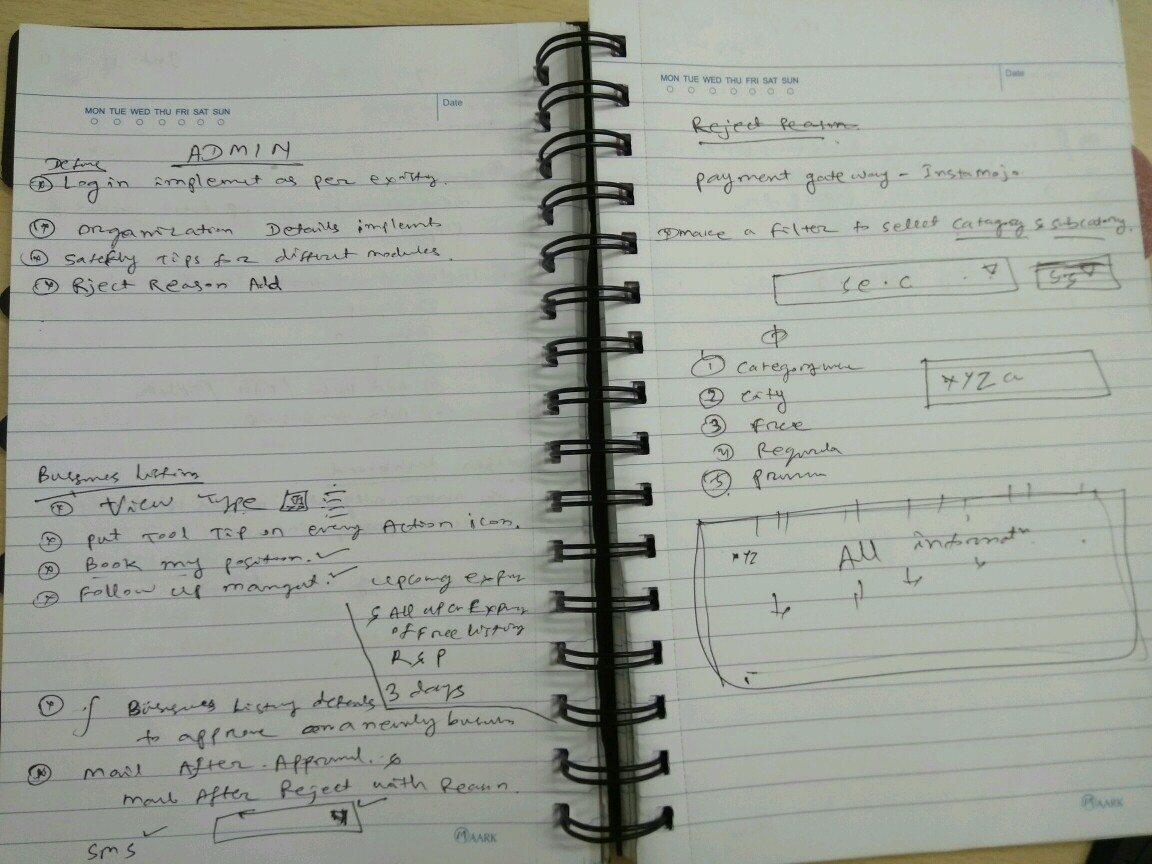 MON TUE WED THU FRI SAT SUN
Date
ADMIN
Define
Log in implemet as per existing.
Organization Details implemts
Safefly Tips for diffrut modules.
Rject Reason Add
Bussines listing
View Type
put Tool Tip on every Action icon.
Book my position. ✓
Follow up mangmt. ✓
upcomg expiry
& All up or Expiry
of Free listing
R & P
3 days
Bussgnes Listing details
to approve a newly
Mail After Approval. &
Mail After Reject with Reason.
SMS ✓
MAARK
MON TUE WED THU FRI SAT SUN
Date
Reject Reason
payment gateway - Instamojo
make a filter to select Category & subcatory.
Se.C
S.S
① Categorywise
② City
③ Free
④
⑤
XYZ
XYZ
All informatn
MAARK